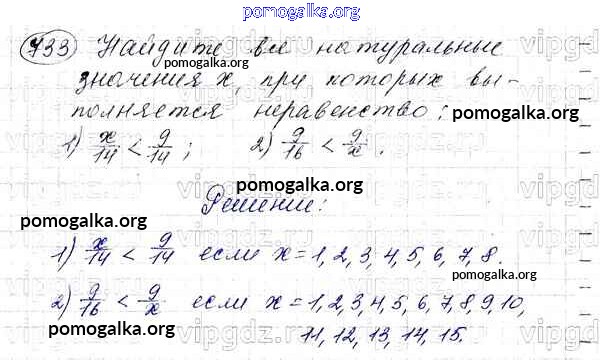 pomogalka.org
733 Найдите все натуральные
значения x, при которых вы-
полняется неравенство:
pomogalka.org
1) x/14 < 9/14; 2) 9/16 < 9/x.
pomogalka.org
Решение:
pomogalka.org
1) x/14 < 9/14 если x = 1, 2, 3, 4, 5, 6, 7, 8.
pomogalka.org
2) 9/16 < 9/x если x = 1, 2, 3, 4, 5, 6, 7, 8, 9, 10,
pomogalka.org
11, 12, 13, 14, 15.